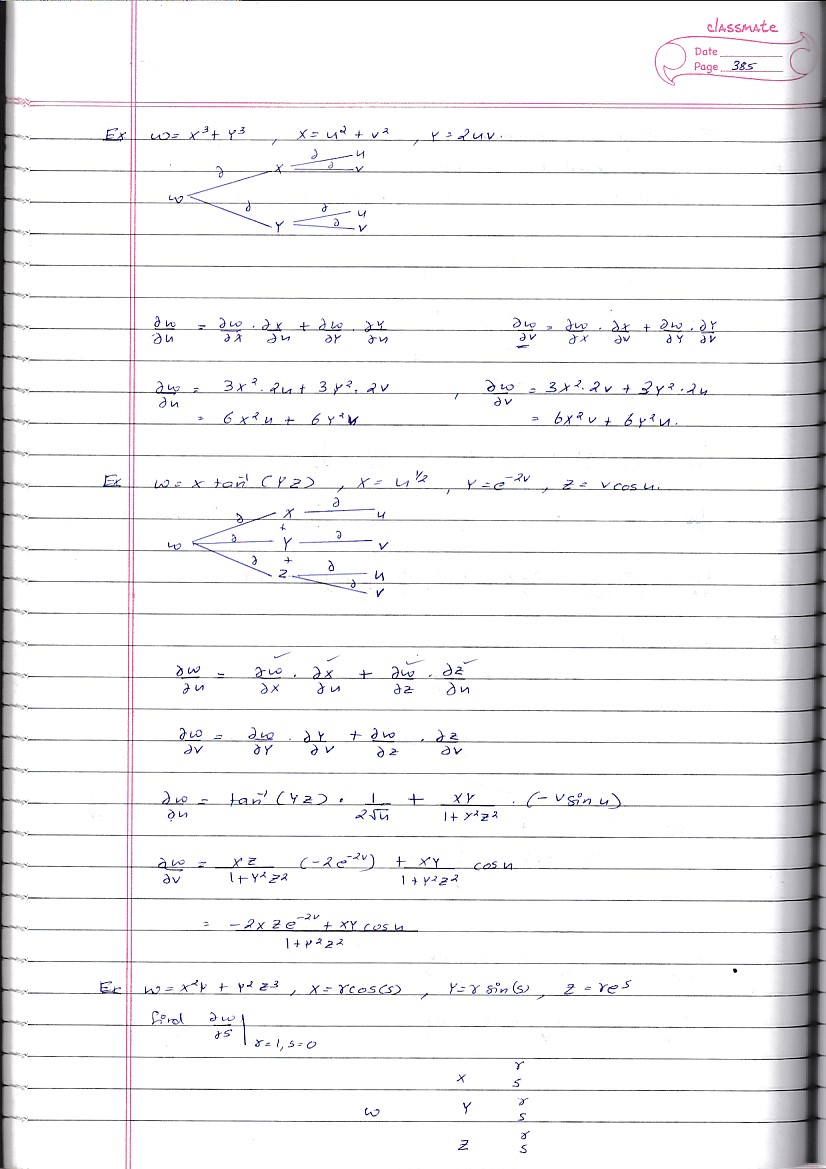 classmate
Date
Page 385
Ex w = x³ + y³ , x = u² + v² , y = 2uv.
∂ x ∂ u
∂ v
w
∂ y ∂ u
∂ v
∂w/∂u = ∂w/∂x · ∂x/∂u + ∂w/∂y · ∂y/∂u ∂w/∂v = ∂w/∂x · ∂x/∂v + ∂w/∂y · ∂y/∂v
∂w/∂u = 3x² · 2u + 3y² · 2v , ∂w/∂v = 3x² · 2v + 3y² · 2u
= 6x²u + 6y²v = 6x²v + 6y²u.
Ex w = x tan⁻¹(yz) , x = u^1/2 , y = e^-2v , z = v cos u.
∂ x ∂ u
+
w ∂ y ∂ v
+
∂ z ∂ u
∂ v
∂w/∂u = ∂w/∂x · ∂x/∂u + ∂w/∂z · ∂z/∂u
∂w/∂v = ∂w/∂y · ∂y/∂v + ∂w/∂z · ∂z/∂v
∂w/∂u = tan⁻¹(yz) · 1/2√u + xy/1+y²z² · (-v sin u)
∂w/∂v = xz/1+y²z² (-2e^-2v) + xy/1+y²z² cos u
= -2xze^-2v + xy cos u/1+y²z²
Ex w = x²y + y²z³ , x = r cos(s) , y = r sin(s) , z = re^s
find ∂w/∂s | r=1, s=0
x r
s
w y r
s
z r
s